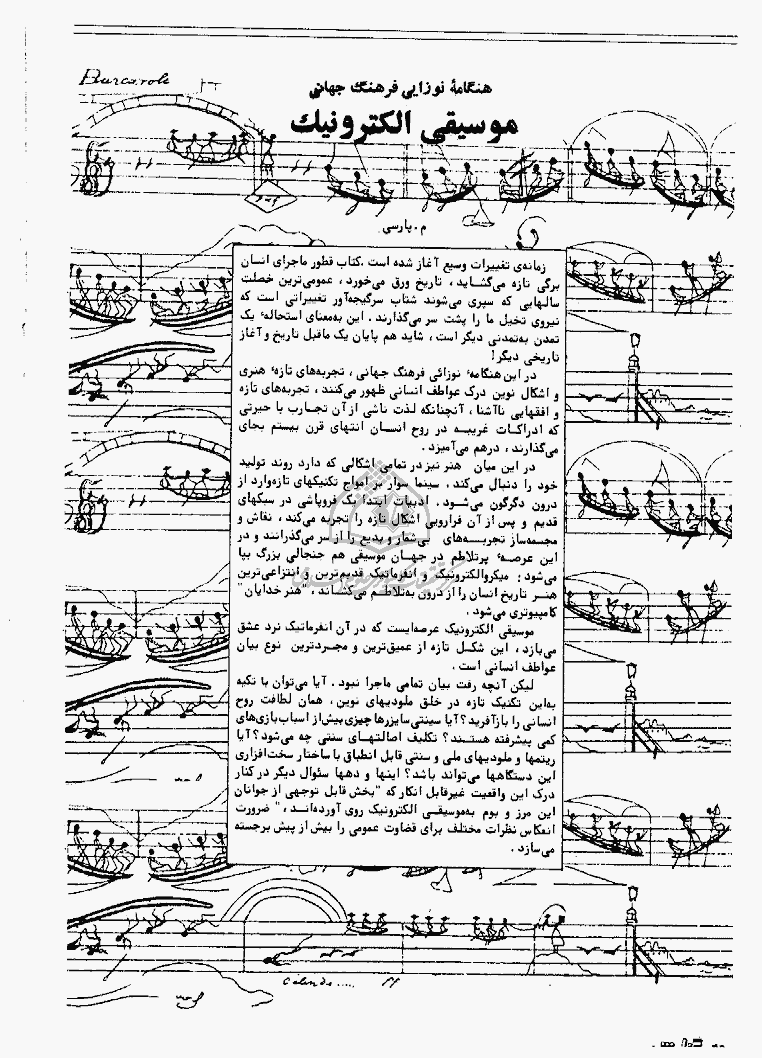 Barcarole
هنگامهٔ نوزایی فرهنگ جهانی
موسیقی الکترونیك
م.پارسی
زمانه‌ی تغییرات وسیع آغاز شده است .کتاب قطور ماجرای انسان
برگی تازه می‌گشاید ، تاریخ ورق می‌خورد ، عمومی‌ترین خصلت
سالهایی که سپری می‌شوند شتاب سرگیجه‌آور تغییراتی است که
نیروی تخیل ما را پشت سر می‌گذارند . این به‌معنای استحاله‌ٔ یک
تمدن به‌تمدنی دیگر است ، شاید هم پایان یک ماقبل تاریخ و آغاز
تاریخی دیگر !
در این هنگامه‌ٔ نوزائی فرهنگ جهانی ، تجربه‌های تازه‌ٔ هنری
و اشکال نوین درک عواطف انسانی ظهور می‌کنند ، تجربه‌های تازه
و افقهایی ناآشنا ، آنچنانکه لذت ناشی از آن تجارب با حیرتی
که ادراکات غریبه در روح انسان انتهای قرن بیستم بجای
می‌گذارند ، درهم می‌آمیزد .
در این میان هنر نیز در تمامی اشکالی که دارد روند تولید
خود را دنبال می‌کند ، سینما سوار بر امواج تکنیکهای تازه‌وارد از
درون دگرگون می‌شود . ادبیات ابتدا یک فروپاشی در سبکهای
قدیم و پس از آن فرارویی اشکال تازه را تجربه می‌کند ، نقاش و
مجسمه‌ساز تجربه‌های بی‌شمار و بدیع را از سر می‌گذرانند و در
این عرصه‌ٔ پرتلاطم در جهان موسیقی هم جنجالی بزرگ بپا
می‌شود ؛ میکروالکترونیک و انفرماتیک قدیم‌ترین و انتزاعی‌ترین
هنر تاریخ انسان را از درون به‌تلاطم می‌کشاند ، "هنر خدایان"
کامپیوتری می‌شود .
موسیقی الکترونیک عرصه‌ایست که در آن انفرماتیک نرد عشق
می‌بازد ، این شکل تازه از عمیق‌ترین و مجردترین نوع بیان
عواطف انسانی است .
لیکن آنچه رفت بیان تمامی ماجرا نبود . آیا می‌توان با تکیه
به‌این تکنیک تازه در خلق ملودیهای نوین ، همان لطافت روح
انسانی را بازآفرید ؟ آیا سینتی سایزرها چیزی بیش از اسباب‌بازی‌های
کمی پیشرفته هستند ؟ تکلیف اصالتهای سنتی چه می‌شود ؟ آیا
ریتمها و ملودیهای ملی و سنتی قابل انطباق با ساختار سخت‌افزاری
این دستگاهها می‌تواند باشد ؟ اینها و دهها سئوال دیگر در کنار
درک این واقعیت غیرقابل انکار که "بخش قابل توجهی از جوانان
این مرز و بوم به‌موسیقی الکترونیک روی آورده‌اند ، " ضرورت
انعکاس نظرات مختلف برای قضاوت عمومی را بیش از پیش برجسته
می‌سازد .